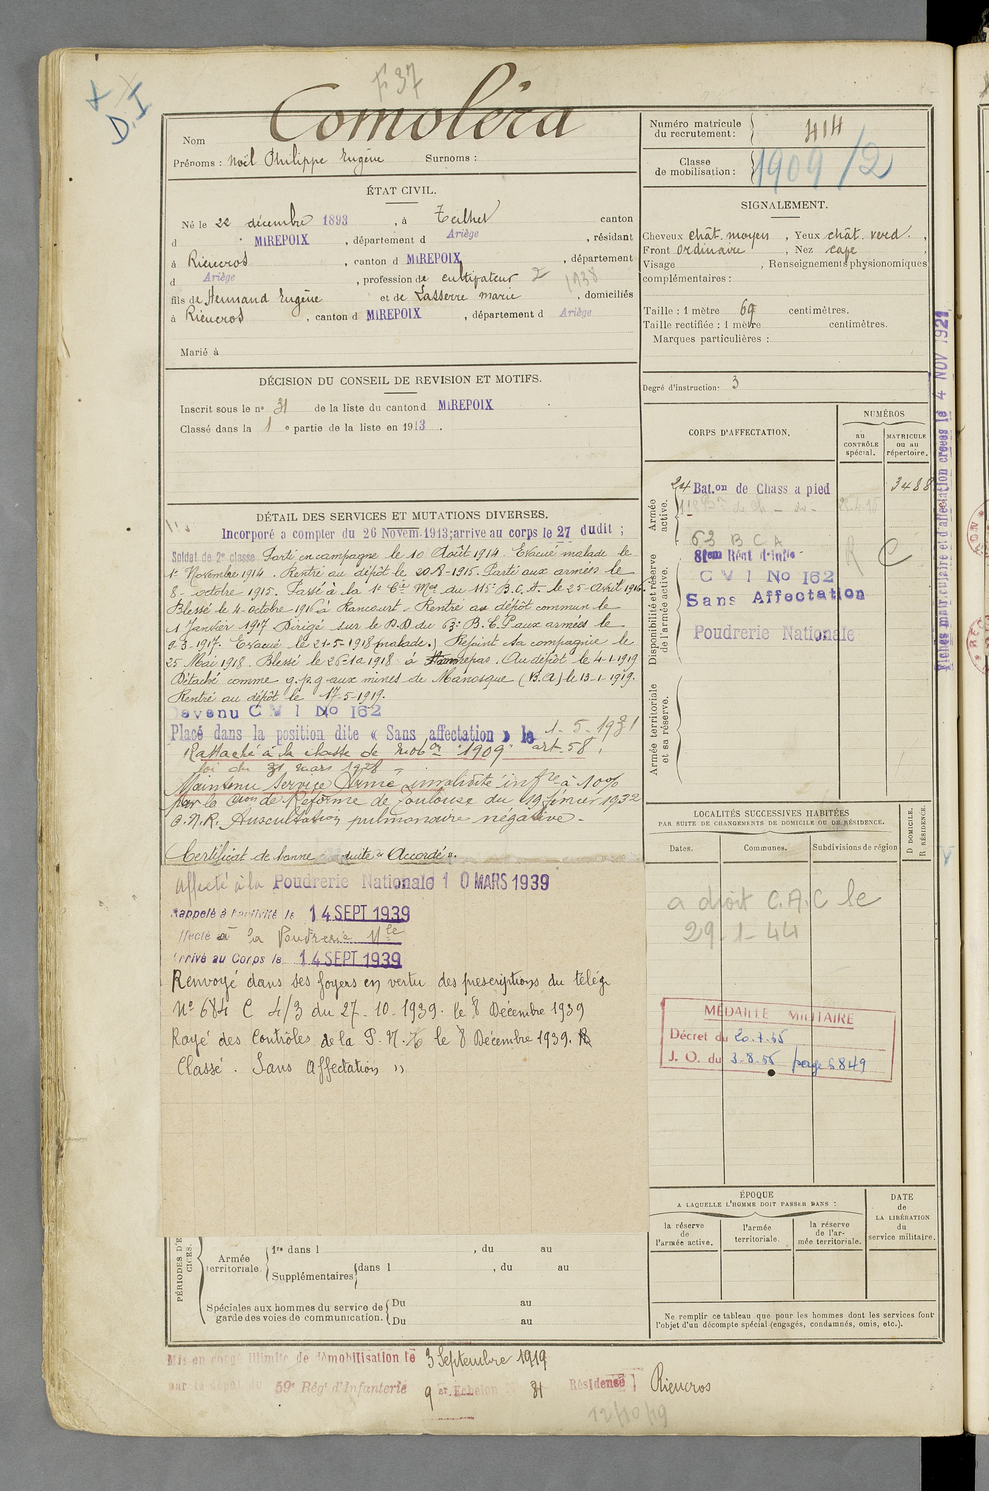 F 37
X
D.I
Nom Comoléra
Prénoms : Noël Philippe Eugène Surnoms :
Numéro matricule du recrutement : 414
Classe de mobilisation : 1909/2
ÉTAT CIVIL.
Né le 22 décembre 1893, à Teilhet canton
d MIREPOIX, département d Ariège, résidant
à Rieucros, canton d MIREPOIX, département
d Ariège, profession de cultivateur 2 1938
fils de Hermand Eugène et de Lasserre Marie, domiciliés
à Rieucros, canton d MIREPOIX, département d Ariège
Marié à
SIGNALEMENT.
Cheveux chât. moyen, Yeux chât. verd.,
Front ordinaire, Nez cave
Visage , Renseignements physionomiques
complémentaires :
Taille : 1 mètre 69 centimètres.
Taille rectifiée : 1 mètre centimètres.
Marques particulières :
Degré d'instruction : 3
DÉCISION DU CONSEIL DE REVISION ET MOTIFS.
Inscrit sous le n° 31 de la liste du canton d MIREPOIX
Classé dans la 1 e partie de la liste en 1913.
DÉTAIL DES SERVICES ET MUTATIONS DIVERSES.
Incorporé à compter du 26 Novem. 1913; arrive au corps le 27 dudit ;
Soldat de 2e classe. Parti en campagne le 10 Août 1914. Évacué malade le
1er Novembre 1914. Rentré au dépôt le 20-8-1915. Parti aux armées le
8 octobre 1915. Passé à la 1e Cie Mses du 115e B.C.A. le 25 Avril 1916
Blessé le 4 octobre 1916 à Rancourt. Rentré au dépôt commun le
1 Janvier 1917 Dirigé sur le D.D. du 63e B.C.P. aux armées le
2-3-1917. Évacué le 21-5-1918 (malade). Rejoint sa compagnie le
25 Mai 1918. Blessé le 26-10-1918 à repas. Au dépôt le 4-1-1919
Détaché comme g.p.g. aux mines de Manosque (B.A) le 13-1-1919.
Rentré au dépôt le 17-5-1919.
Devenu C M I No 162
Placé dans la position dite « Sans affectation » le 1-5-1931
Rattaché à la classe de mobon "1909" art. 58,
loi du 31 mars 1928
Maintenu Service Armé, invalidité infre à 10%
par la Con de Réforme de Toulouse du 19 février 1932
O.N.R. Auscultation pulmonaire négative.
Certificat de bonne duite "Accordé".
Affecté à la Poudrerie Nationale 10 MARS 1939
Rappelé à l'activité le 14 SEPT 1939
ffecté à la Poudrerie Nle
rrivé au Corps le 14 SEPT 1939
Renvoyé dans ses foyers en vertu des prescriptions du télég.
No 684 C 4/3 du 27.10.1939. le 8 Décembre 1939
Rayé des contrôles de la P.N. le 8 Décembre 1939.
Classé. Sans Affectation »
CORPS D'AFFECTATION.
NUMÉROS
au CONTRÔLE spécial.
MATRICULE ou au répertoire.
Armée active.
24 Bat.on de Chass à pied 3488
63 B C A
81em Régt d'Infie
C M I No 162
Sans Affectation
Poudrerie Nationale
R C
Disponibilité et réserve de l'armée active.
Armée territoriale et sa réserve.
Fiches matriculaire et d'affectation créées le 4 NOV 1921
LOCALITÉS SUCCESSIVES HABITÉES
PAR SUITE DE CHANGEMENTS DE DOMICILE OU DE RÉSIDENCE.
Dates. Communes. Subdivisions de région
D DOMICILE. R RÉSIDENCE.
a droit C.A.C le
29-1-44
MÉDAILLE MILITAIRE
Décret du 20.7.55
J. O. du 3-8-55 page 6849
ÉPOQUE
A LAQUELLE L'HOMME DOIT PASSER DANS :
la réserve de l'armée active.
l'armée territoriale.
la réserve de l'armée territoriale.
DATE de LA LIBÉRATION du service militaire.
Ne remplir ce tableau que pour les hommes dont les services font l'objet d'un décompte spécial (engagés, condamnés, omis, etc.).
PÉRIODES D'E
CICES.
Armée territoriale. 1re dans l , du au
Supplémentaires dans l , du au
Spéciales aux hommes du service de garde des voies de communication. Du au
Du au
Mis en congé illimité de démobilisation le 3 Septembre 1919
par le dépôt du 59e Régt d'Infanterie 9 e Echelon 31 Résidence Rieucros
12/10/19